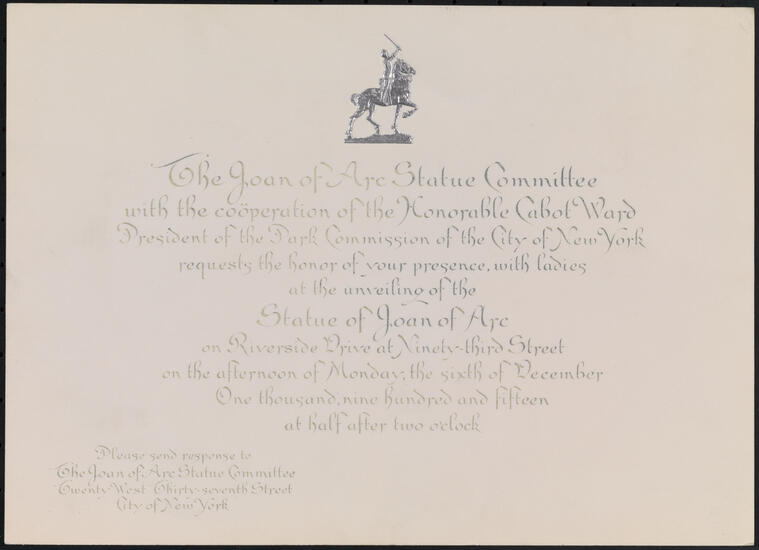 The Joan of Arc Statue Committee
with the coöperation of the Honorable Cabot Ward
President of the Park Commission of the City of New York
requests the honor of your presence, with ladies
at the unveiling of the
Statue of Joan of Arc
on Riverside Drive at Ninety-third Street
on the afternoon of Monday, the sixth of December
One thousand, nine hundred and fifteen
at half after two o'clock
Please send response to
The Joan of Arc Statue Committee
Twenty West Thirty-seventh Street
City of New York